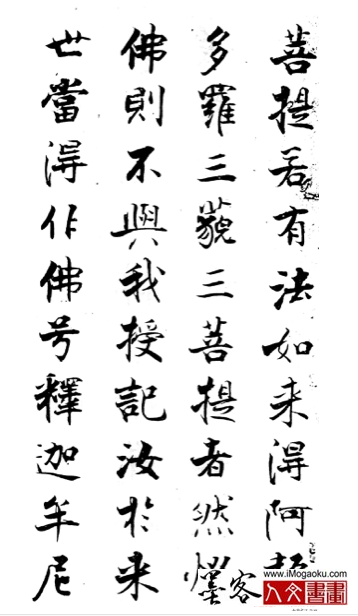 菩提若有法如来得阿
多羅三藐三菩提者然
佛則不與我授記汝於来
世當得作佛号釋迦牟尼
客
www.iMogaoku.com